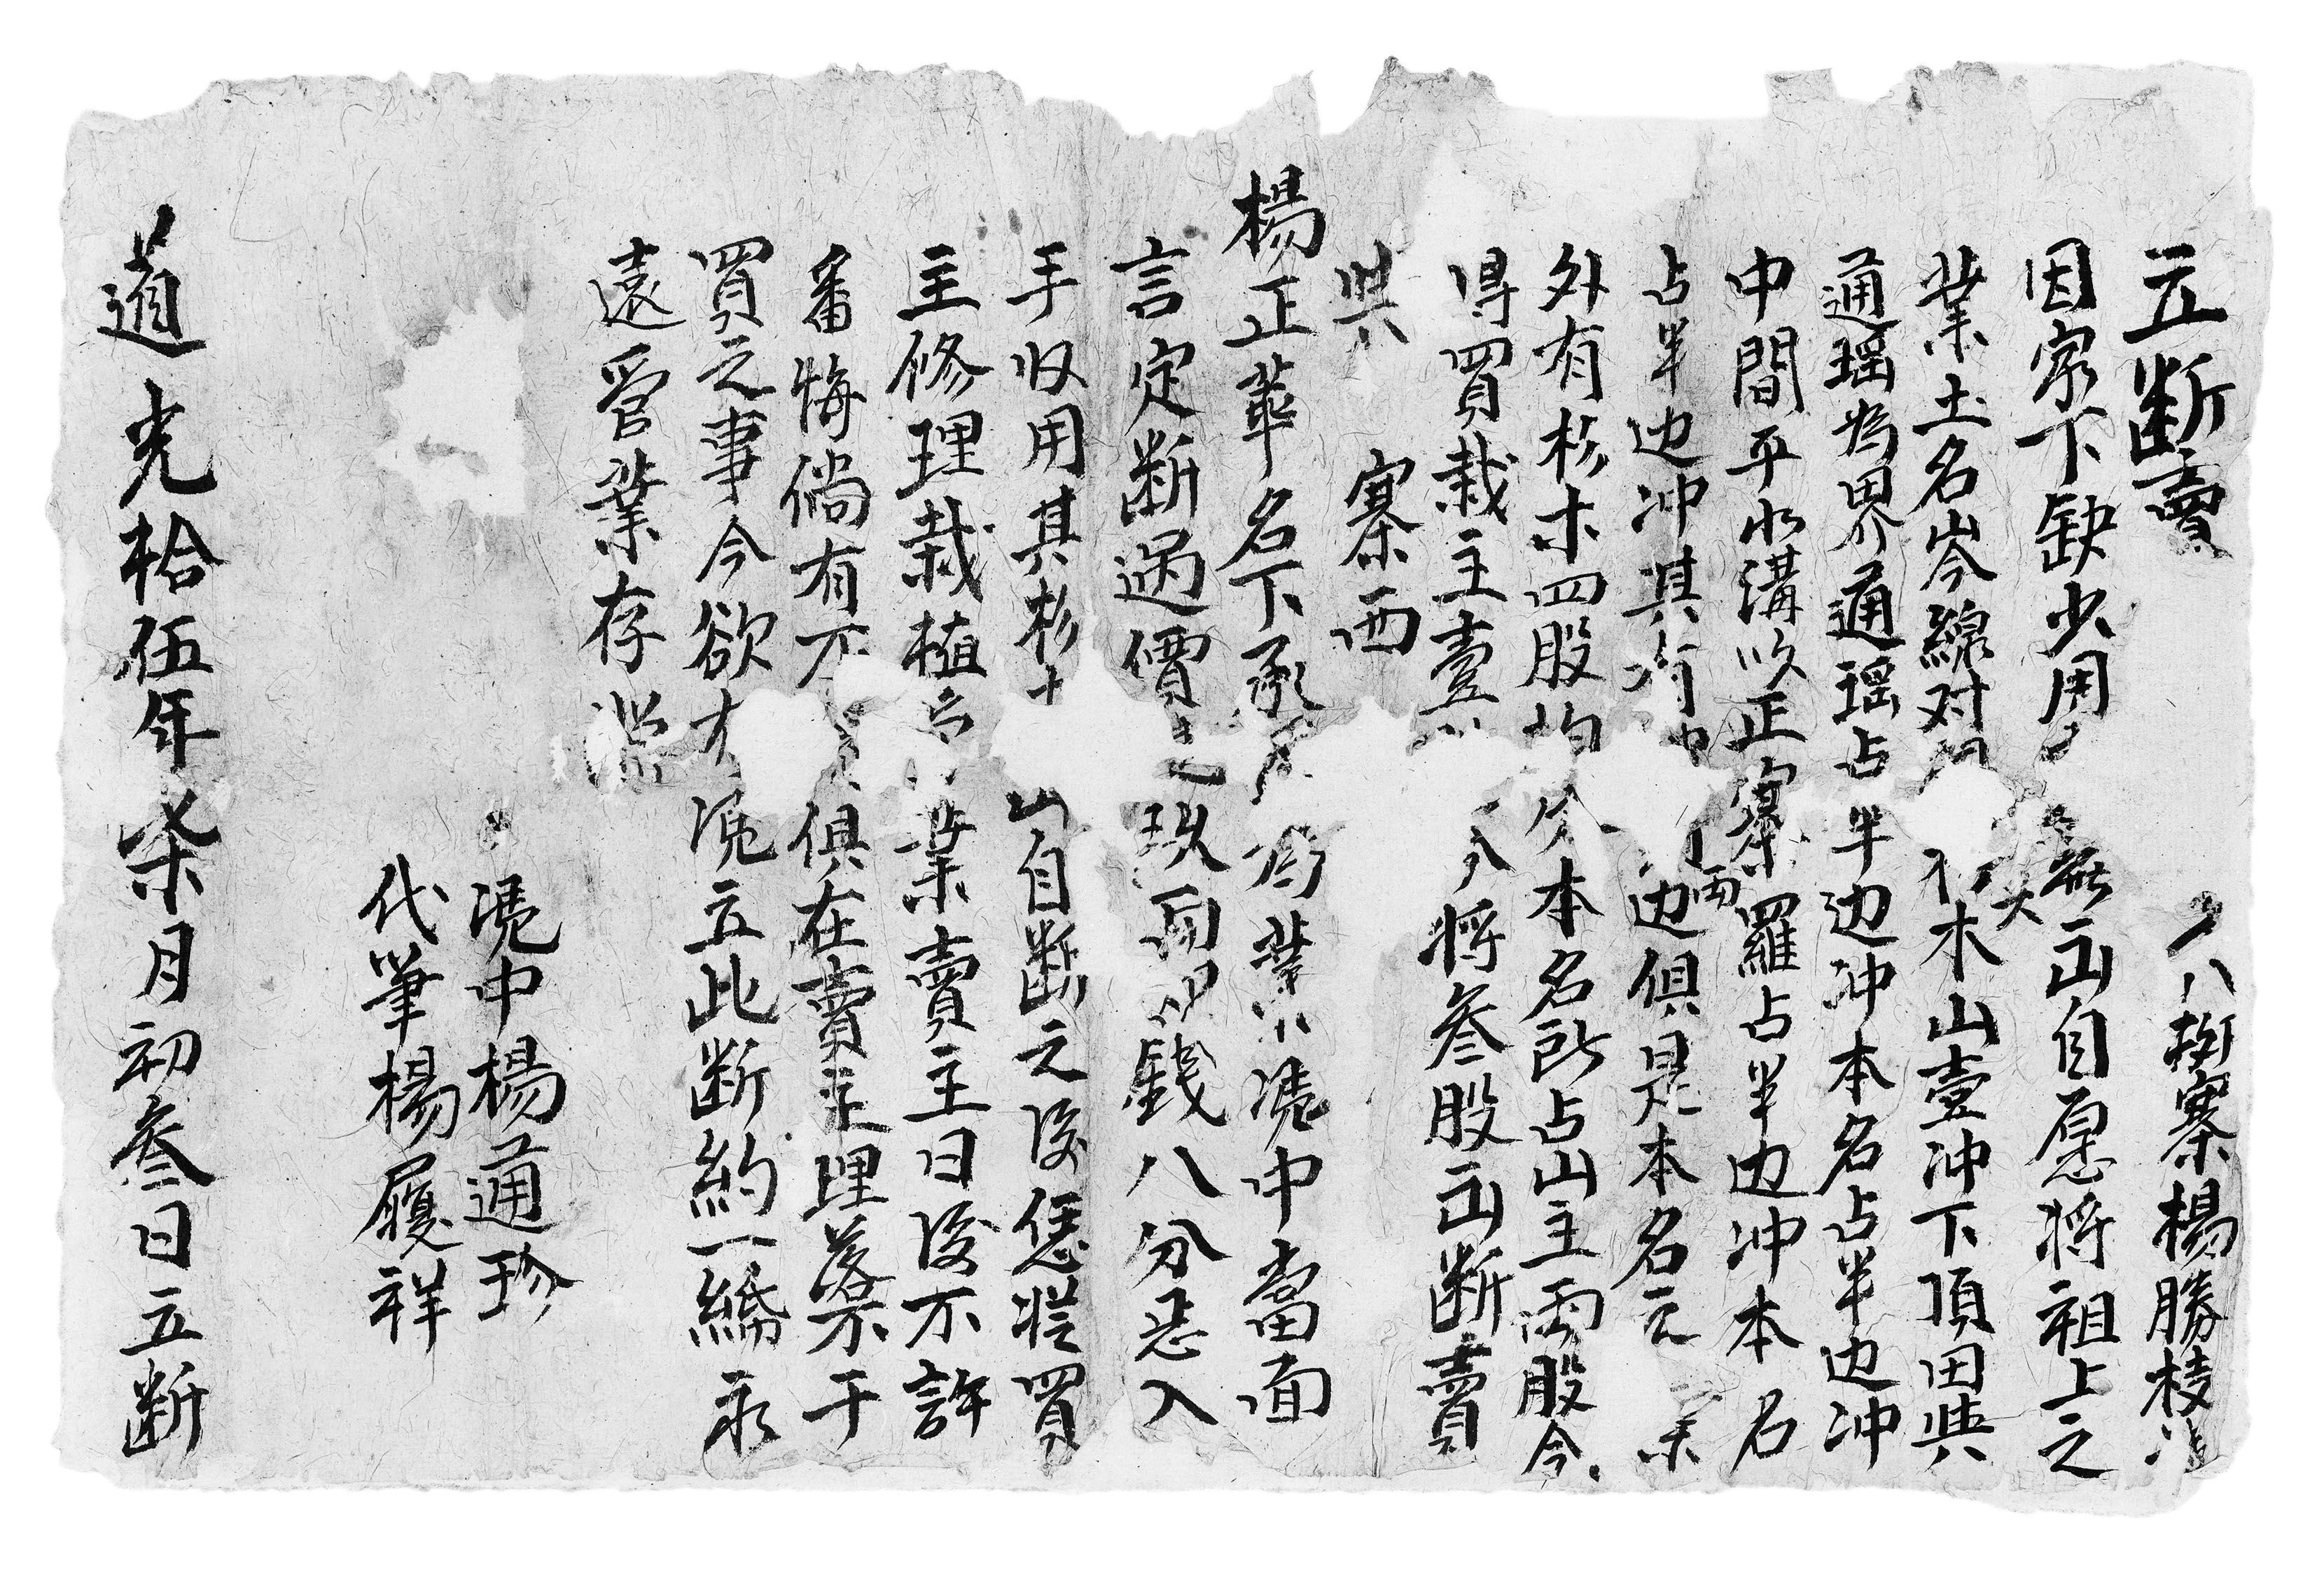 立断賣八掛寨楊勝枝
因家下缺少用無山自愿將祖上之
業土名岑線对木山壹冲下頂田與
通瑶為界通瑶占半边冲本名占半边冲
中間平水溝以正寨羅占半边冲本名
占半边冲其有両边俱是本名元業
外有杉木四股均分本名所占山主両股今
得買栽主壹今將叁股山断賣
與寨西
楊正華名下承為業憑中當面
言定断過價錢八分亲入
手収用其杉山自断之後恁從買
主修理栽植業賣主日後不許
番悔倘有不俱在賣主理落不干
買之事今欲有凴立此断約一紙永
遠管業存照
凴中楊通珍
代筆楊履祥
道光拾伍年柒月初叁日立断